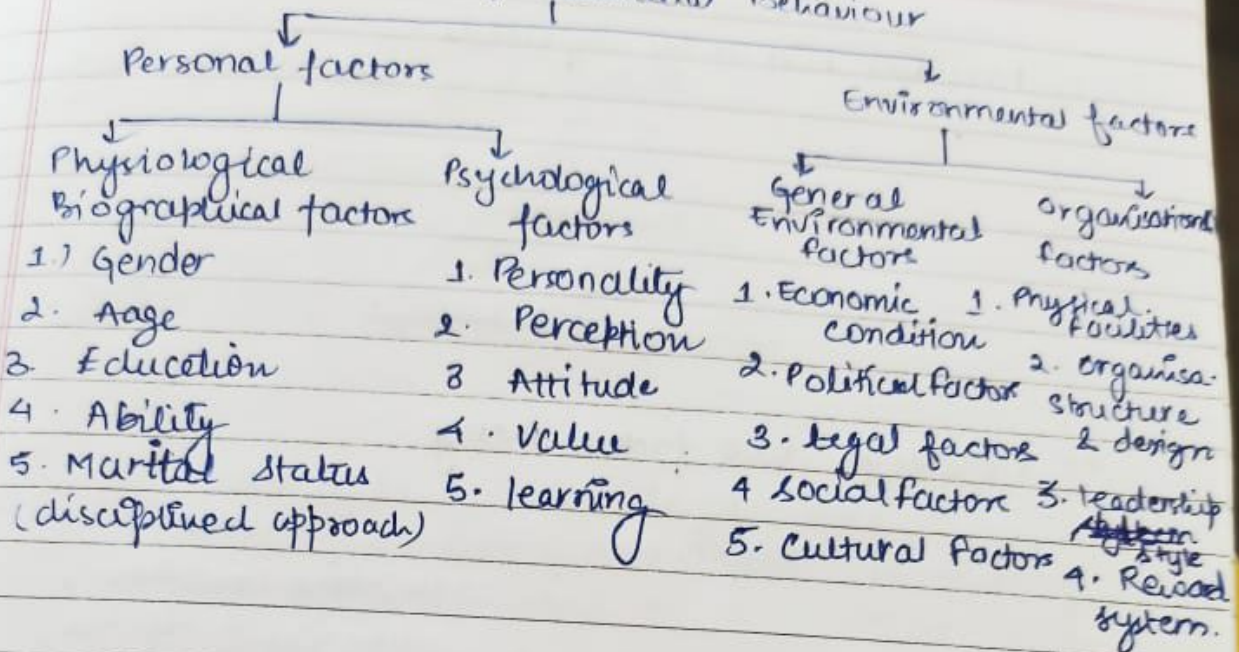 Behaviour
Personal factors
Environmental factors
Physiological
Biographical factors
1.) Gender
2. Aage
3. Education
4. Ability
5. Marital status
(disciplined approach)
Psychological
factors
1. Personality
2. Perception
3 Attitude
4. Value
5. learning
General
Environmental
factors
1. Economic
condition
2. Political factor
3. Legal factors
4 social factors
5. Cultural factors
Organisational
factors
1. Physical
facilities
2. Organisa.
structure
& design
3. Leadership
style
4. Reward
system.